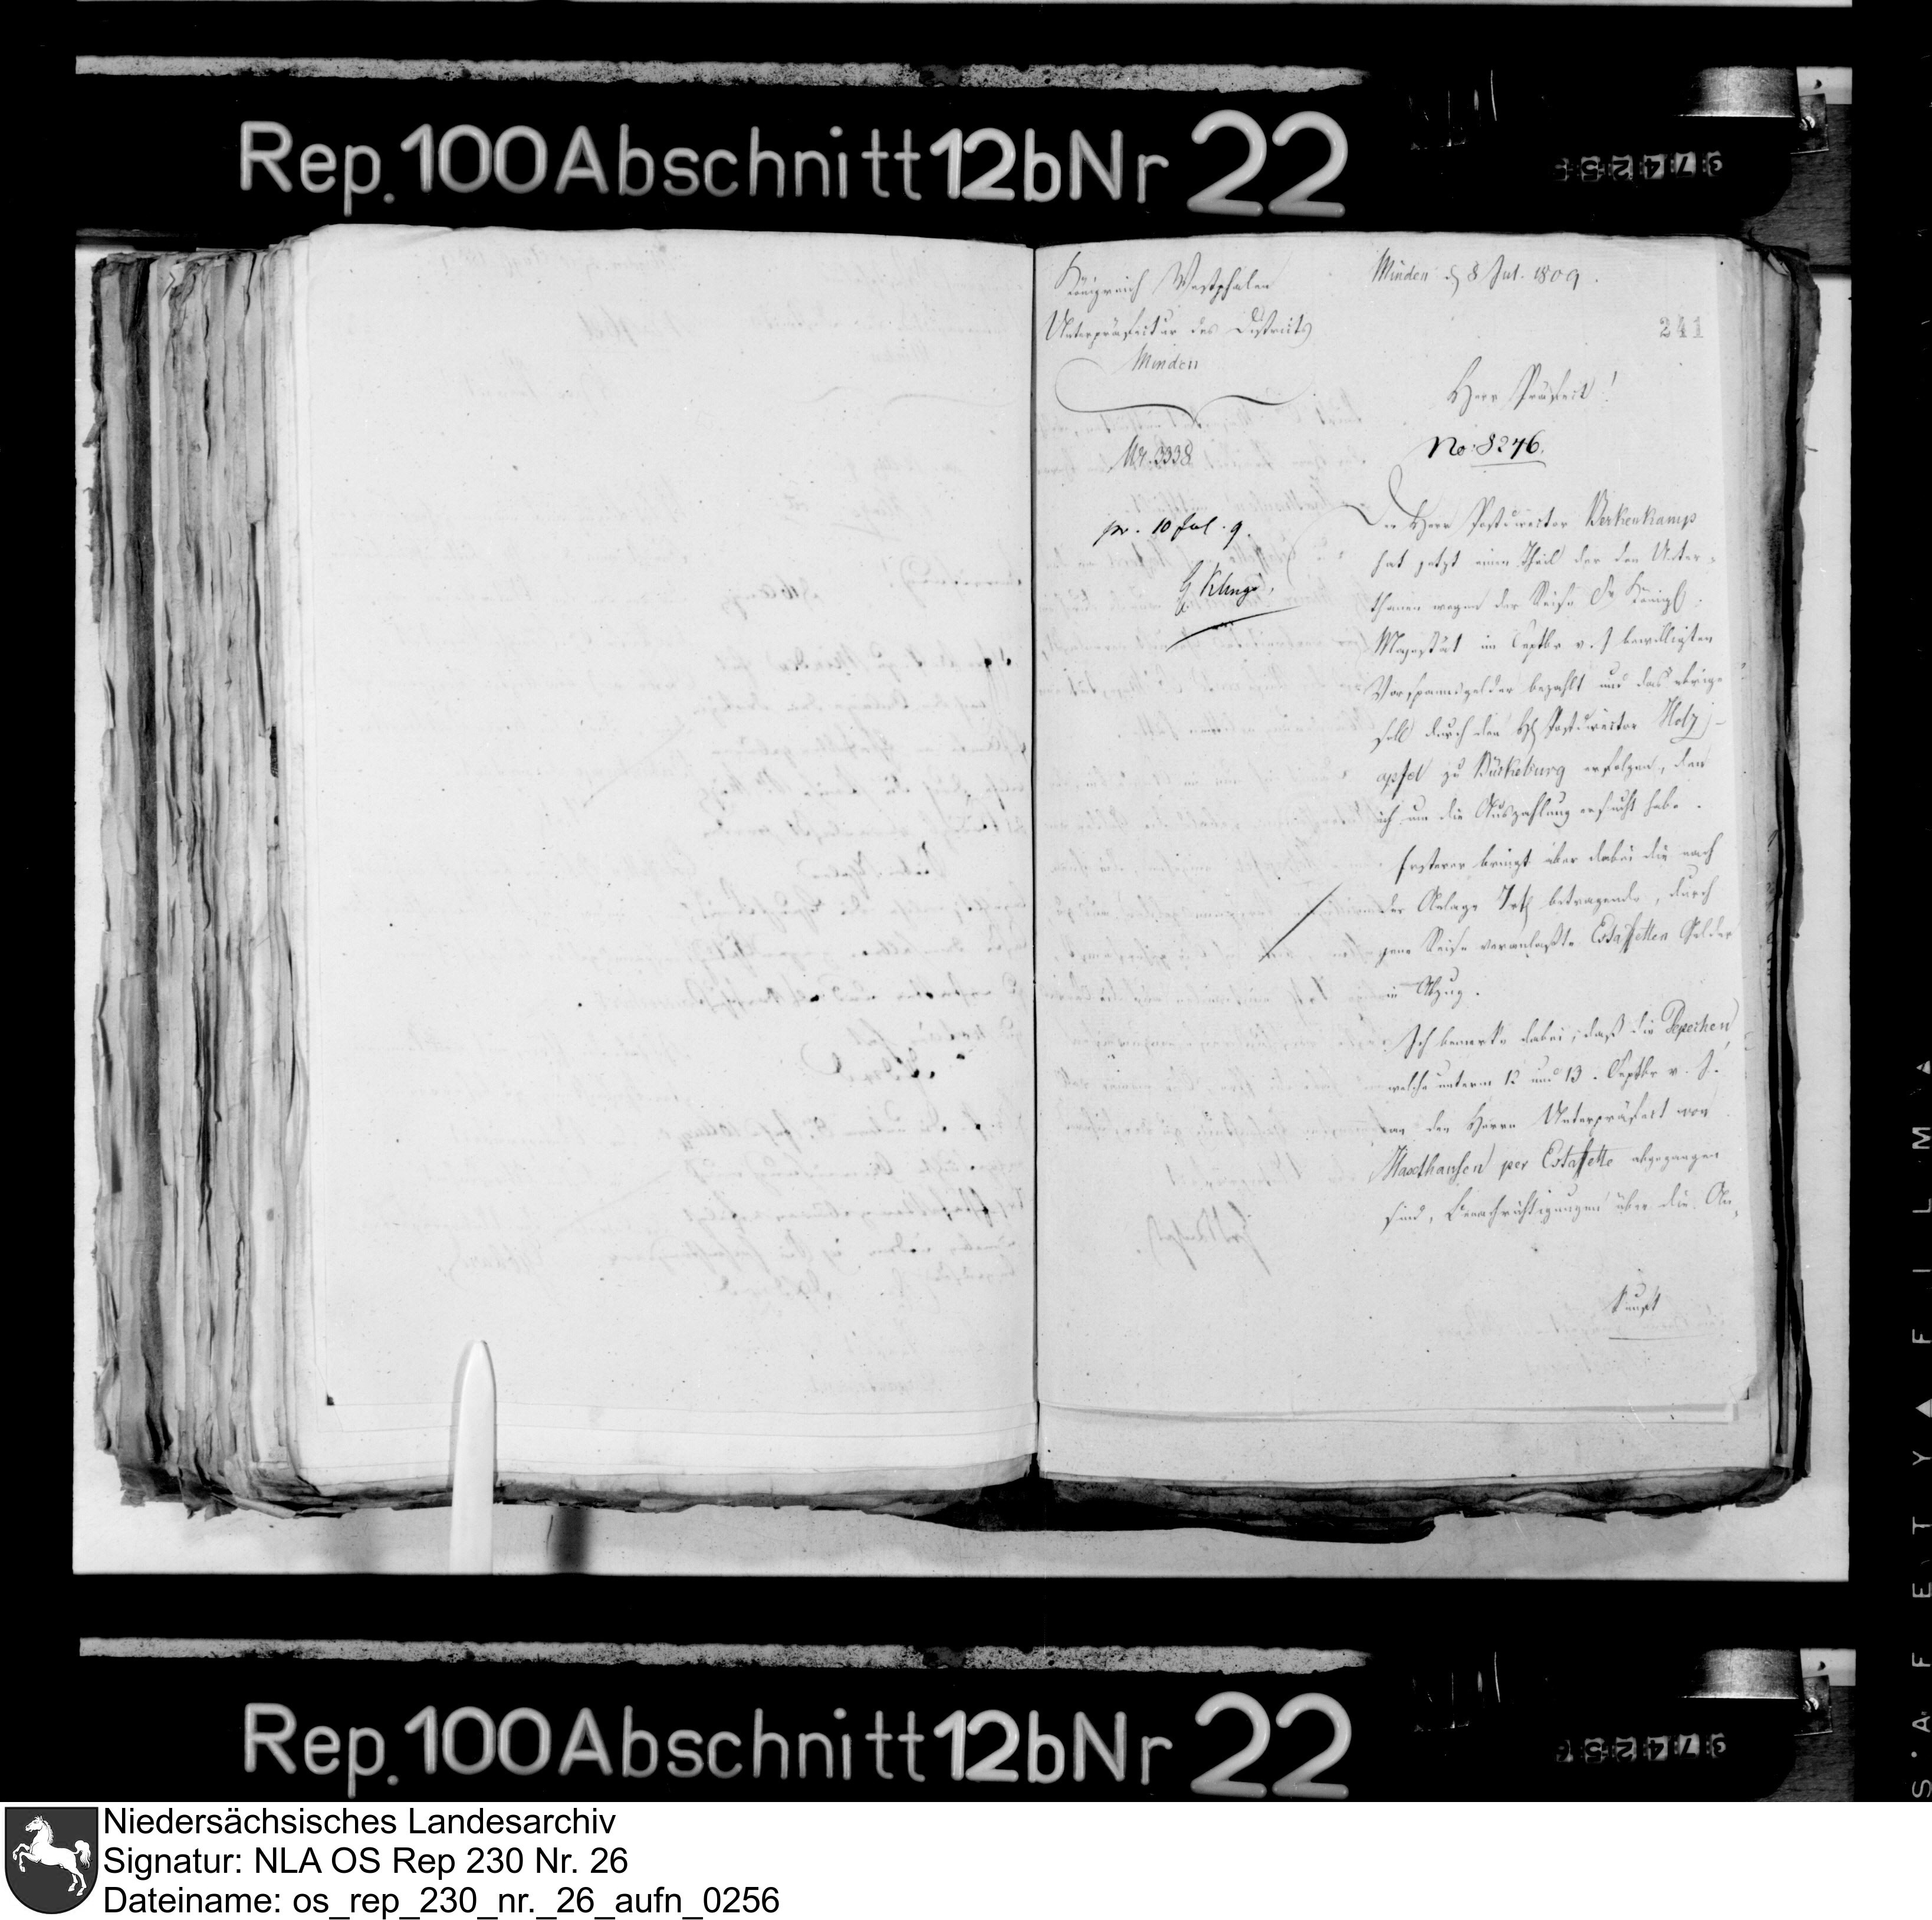 Rep. 100 Abschnitt 12b Nr 22
97425
Königreich Westphalen
Unterpräfectur des Districts
Minden
Minden d 8 Jul. 1809.
241
Herr Präfect!
No: 8246.
Nr. 3338
pr. 10 Jul. 9.
Klunge
Der Herr Postdirector Berkenkamp
hat jetzt einen Theil der den Unter-
thanen wegen der Reise Sr Königl.
Majestät im Septbr v. J bewilligten
Vorspannsgelder bezahlt und das übrige
soll durch den H Postdirector Holz-
apfel zu Bückeburg erfolgen, den
ich um die Auszahlung ersucht habe.
Ersterer bringt aber dabei die nach
der Anlage betragende, durch
jene Reise veranlaßte Estaffetten Gelder
in Abzug.
Ich bemerke dabei, daß die Depechen,
welche unterm 12 und 13. Septbr v. J.
an den Herrn Unterpräfect von
Haxthausen per Estaffette abgegangen
sind, Benachrichtigungen über die An-
kunft
Rep. 100 Abschnitt 12b Nr 22
97425
SAFETY FILM
Niedersächsisches Landesarchiv
Signatur: NLA OS Rep 230 Nr. 26
Dateiname: os_rep_230_nr._26_aufn_0256